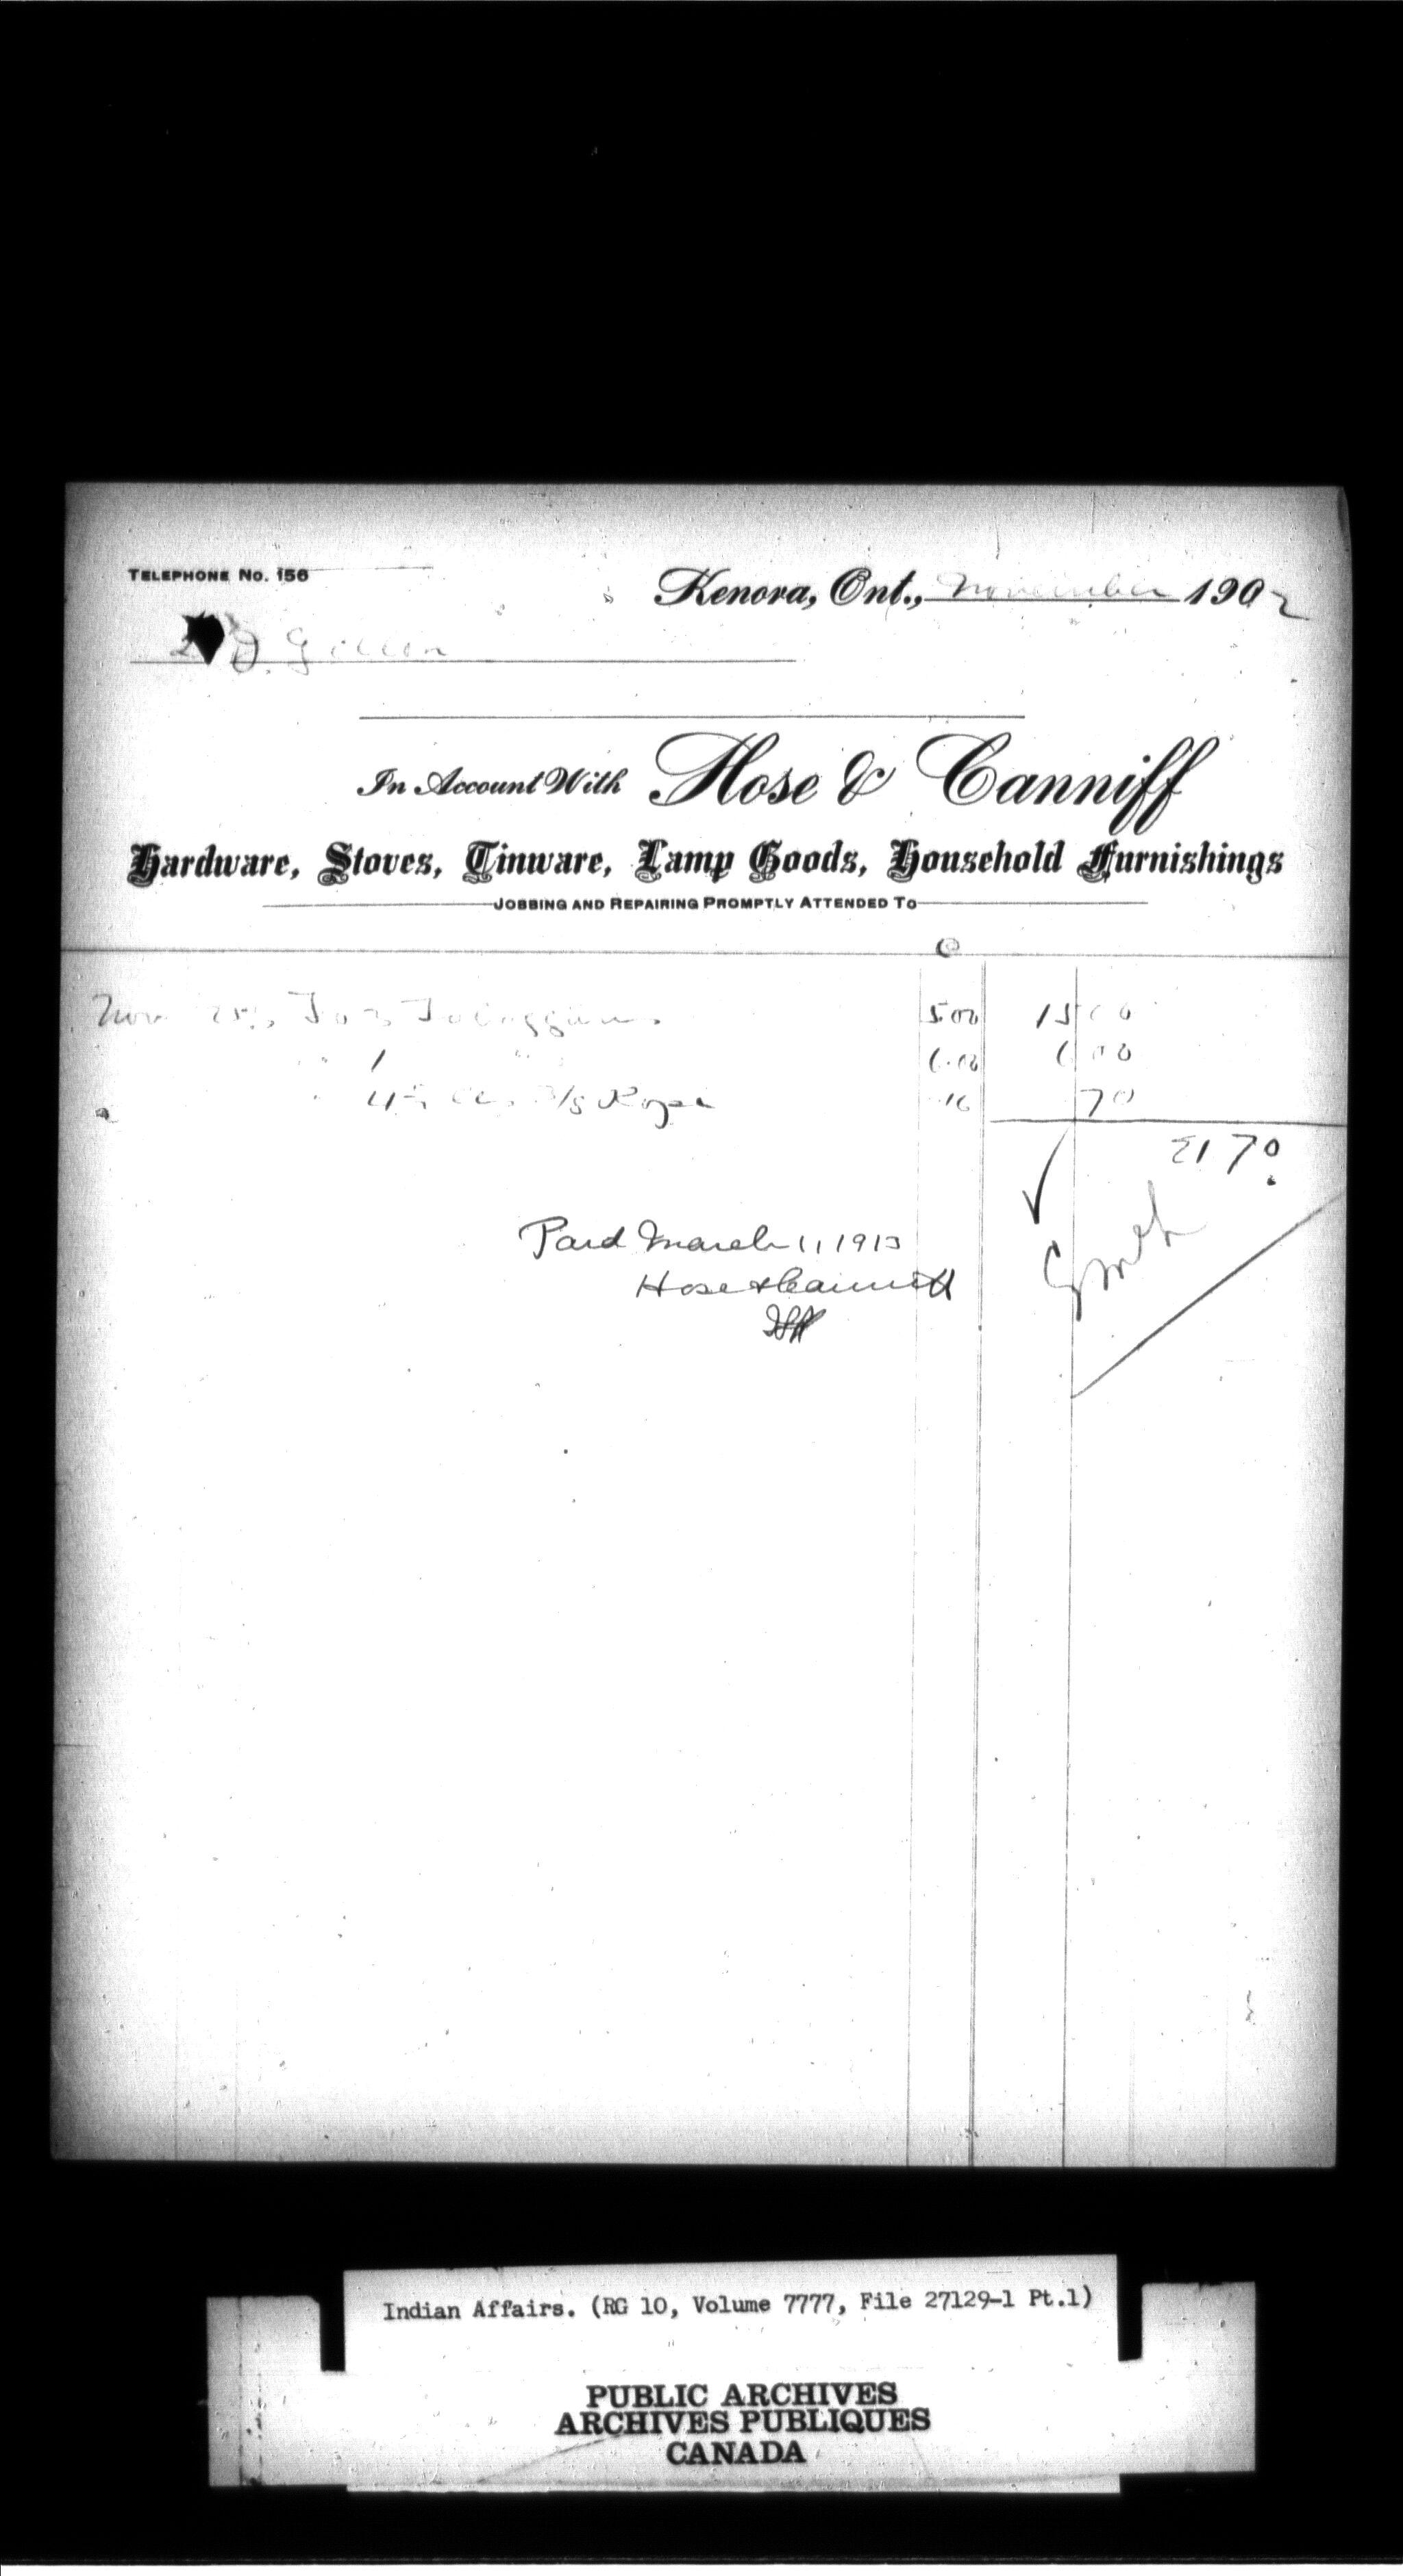 TELEPHONE No. 156
Kenora, Ont., November 1902
D. Gillon
In Account With Hose & Canniff
Hardware, Stoves, Tinware, Lamp Goods, Household Furnishings
JOBBING AND REPAIRING PROMPTLY ATTENDED TO
Nov 25 To 3 Toboggans 5.00 15 00
" 1 " 6.00 6 00
3/8 Rope 16 70
21 70
Paid March 11 1913
Hose & Canniff
Indian Affairs. (RG 10, Volume 7777, File 27129-1 Pt.1)
PUBLIC ARCHIVES
ARCHIVES PUBLIQUES
CANADA